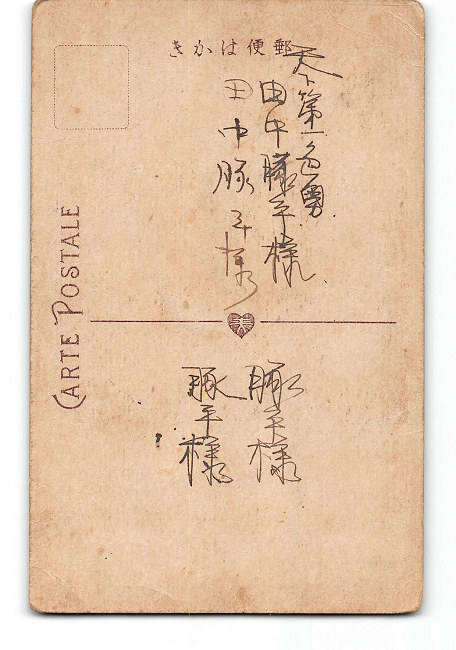 郵便はかき
天下第一色男
田中豚平様
田中豚平様
CARTE POSTALE
豚平様
豚平様